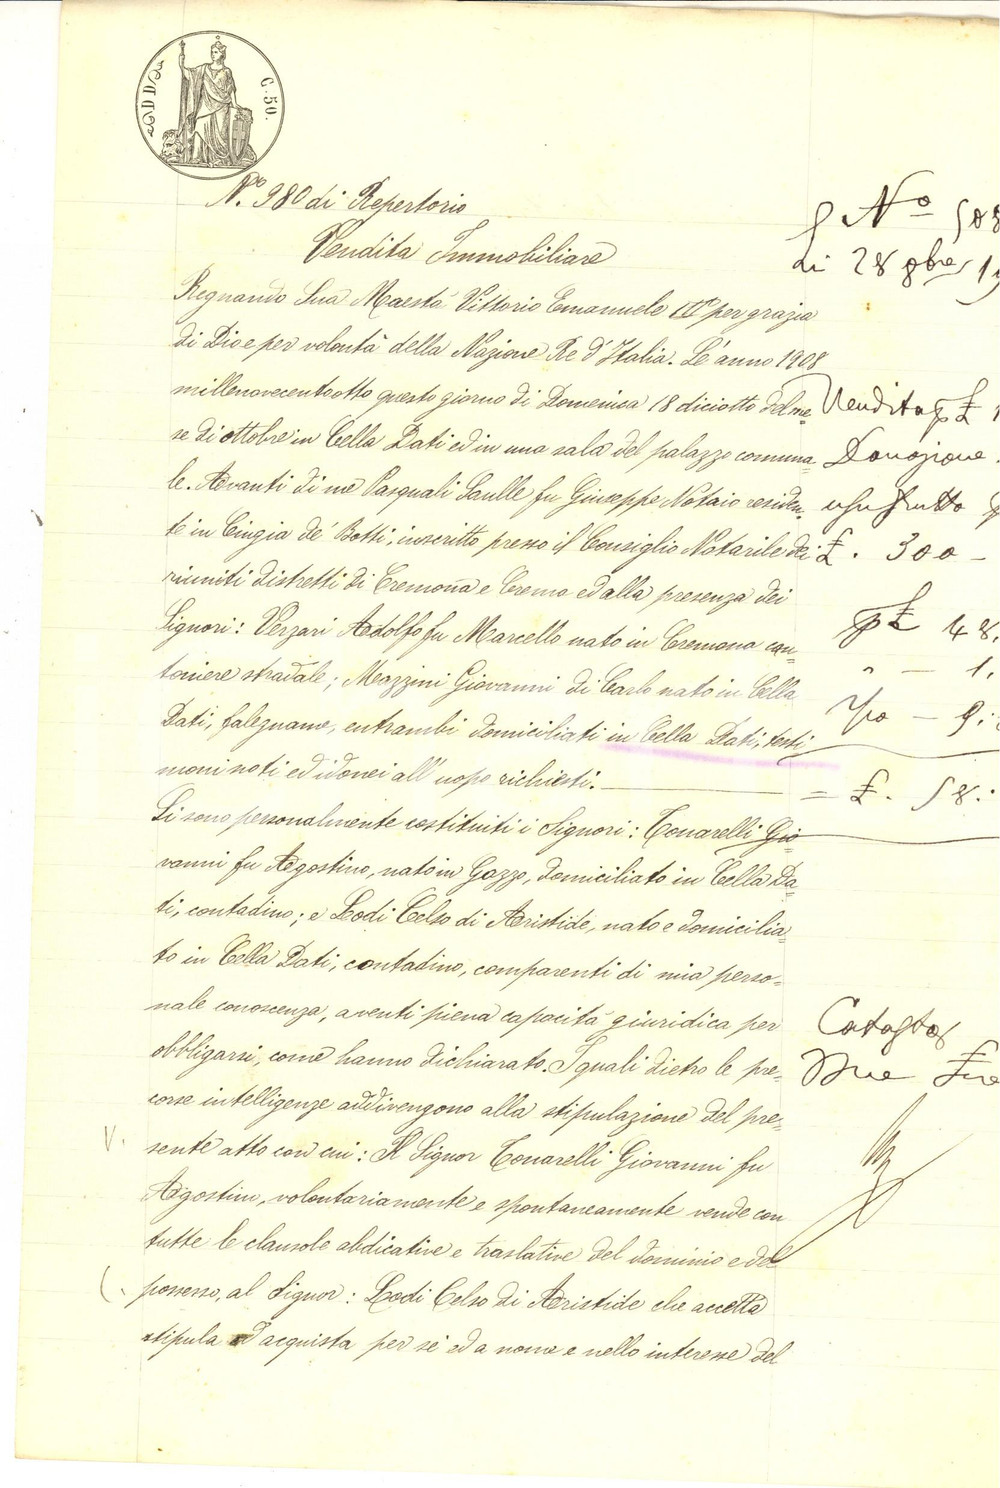 C. 50.
N.º 980 di Repertorio
Vendita Immobiliare
Regnando Sua Maestà Vittorio Emanuele IIIº per grazia
di Dio e per volontà della Nazione Re d'Italia. L'anno 1908
millenovecentootto questo giorno di Domenica 18 diciotto del me-
se di ottobre in Cella Dati ed in una sala del palazzo comuna-
le. Avanti di me Pasquali Saulle fu Giuseppe Notaio residen-
te in Cingia de' Botti, inscritto presso il Consiglio Notarile dei
riuniti distretti di Cremona e Crema ed alla presenza dei
Signori: Verzari Adolfo fu Marcello nato in Cremona can-
toniere stradale; Mazzini Giovanni di Carlo nato in Cella
Dati, falegname, entrambi domiciliati in Cella Dati, testi-
moni noti ed idonei all'uopo richiesti.
Si sono personalmente costituiti i Signori: Tonarelli Gio-
vanni fu Agostino, nato in Gazzo, domiciliato in Cella Da-
ti, contadino; e Lodi Celso di Aristide, nato e domicilia-
to in Cella Dati, contadino, comparenti di mia perso-
nale conoscenza, aventi piena capacità giuridica per
obbligarsi, come hanno dichiarato. I quali dietro le pre-
corse intelligenze addivengono alla stipulazione del pre-
sente atto con cui: Il Signor Tonarelli Giovanni fu
Agostino, volontariamente e spontaneamente vende con
tutte le clausole abdicative e traslative del dominio e del
possesso, al Signor: Lodi Celso di Aristide che accetta
stipula ed acquista per sè ed a nome e nello interesse del
Nº 508
di 28 9bre 19
Vendita p £ 1
Donazione
usufrutto
£. 300 -
p £ 48.
" — 1.
— 9:
= £. 58: